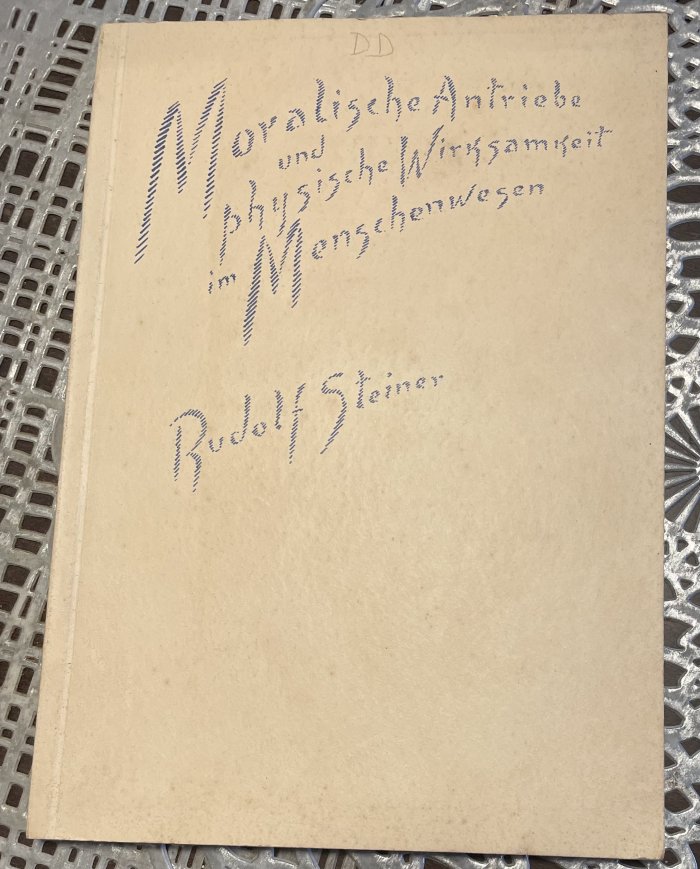 DD
Moralische Antriebe
und
physische Wirksamkeit
im Menschenwesen
Rudolf Steiner